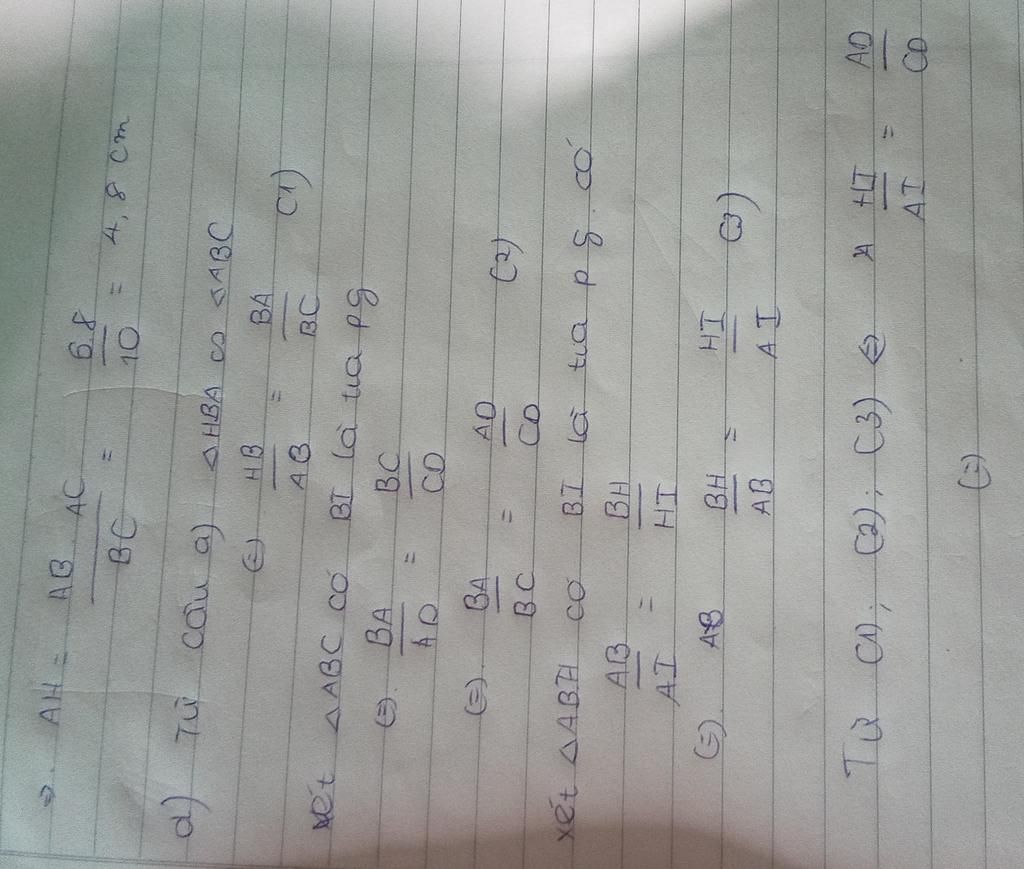 ⇒. AH = AB . AC / BC = 6.8 / 10 = 4,8 cm
d) Từ câu a) △HBA ∽ △ABC
(=) HB / AB = BA / BC (1)
xét △ABC có BI là tia pg
(=). BA / AD = BC / CD
(=). BA / BC = AD / CD (2)
xét △ABH có BI là tia pg. có
AB / AI = BH / HI
(=). BH / AB = HI / AI (3)
Từ (1); (2); (3) ⇔ HI / AI = AD / CD
(=)